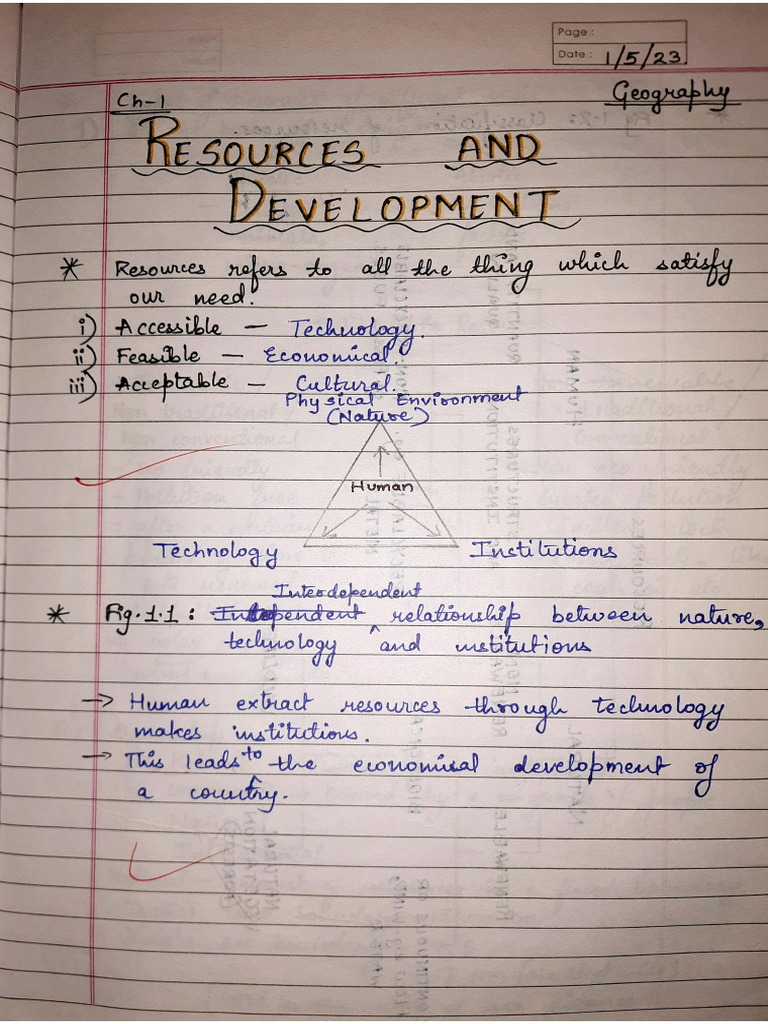 Page :
Date : 1/5/23
Ch-1
Geography
RESOURCES AND
DEVELOPMENT
* Resources refers to all the thing which satisfy
our need.
i) Accessible - Technology.
ii) Feasible - Economical.
iii) Acceptable - Cultural.
Physical Environment
(Nature)
Human
Technology Institutions
Interdependent
* Fig. 1.1 : relationship between nature,
technology ^ and institutions
→ Human extract resources through technology
makes institutions.
→ This leads to the economical development of
a country.